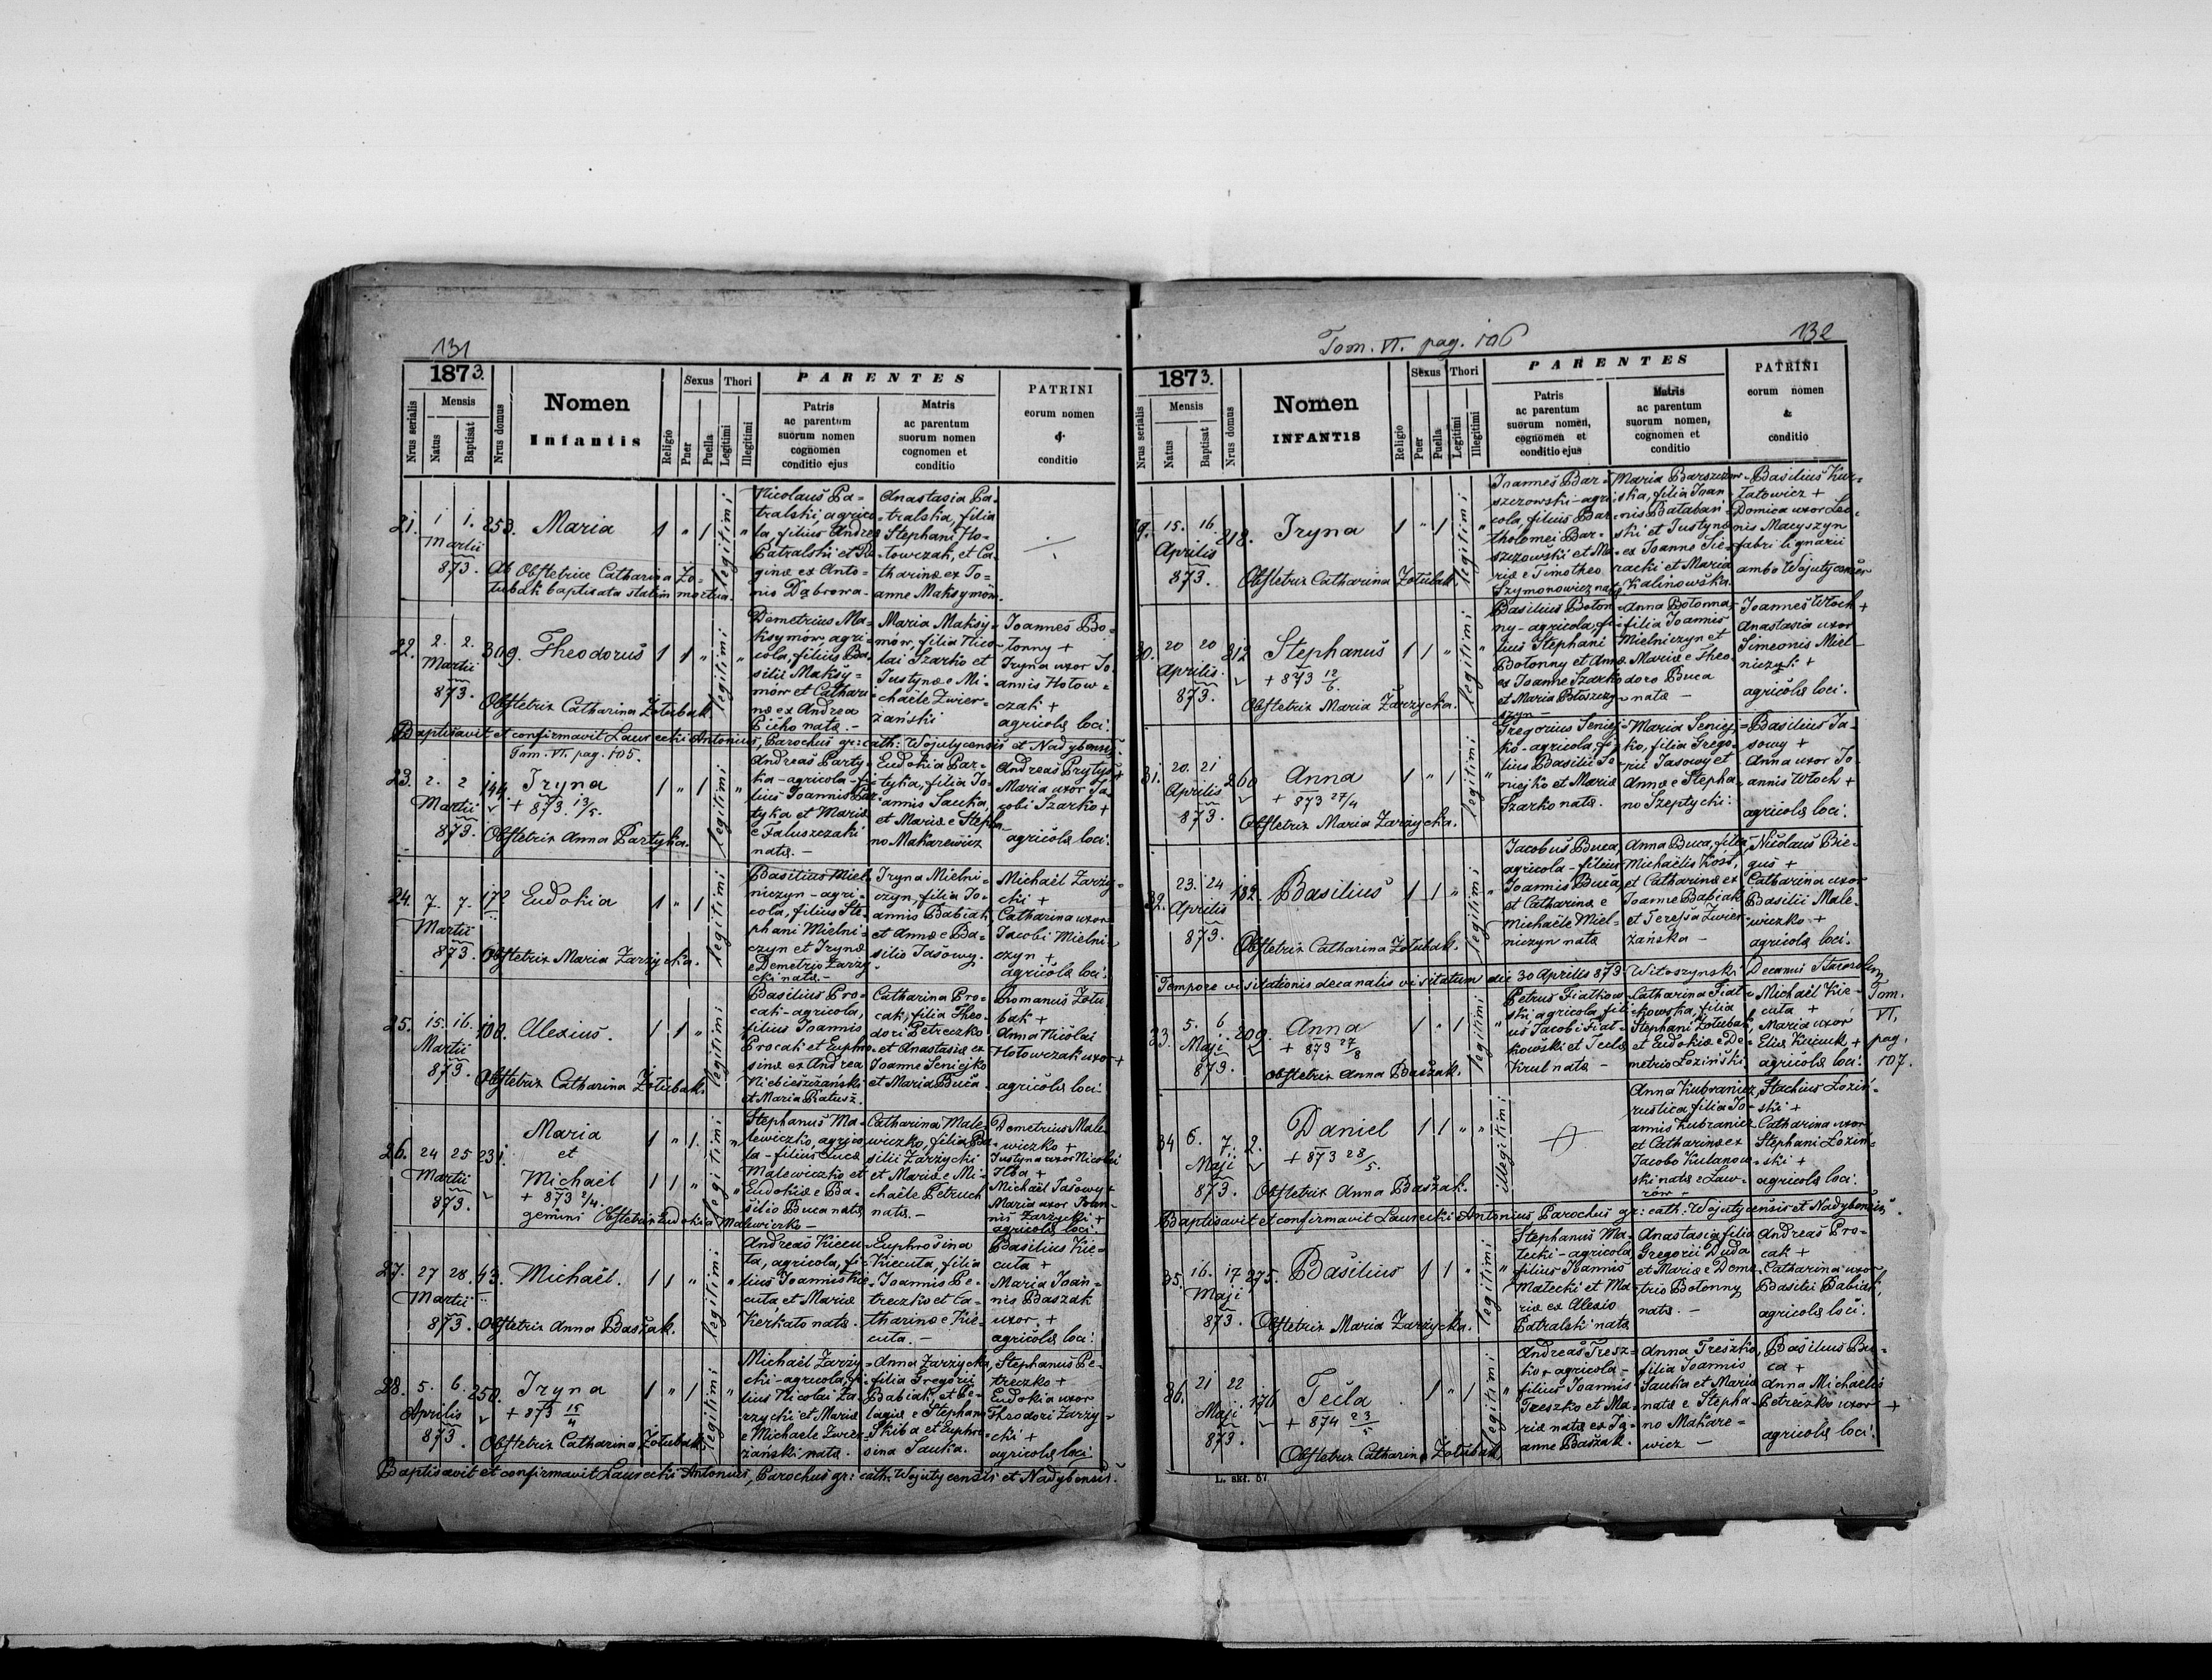 131
1873.
Nrus serialis
Mensis
Natus
Baptisat
Nrus domus
Nomen
Infantis
Religio
Sexus
Puer
Puella
Thori
Legitimi
Illegitimi
PARENTES
Patris
ac parentum
suorum nomen
cognomen
conditio ejus
Matris
ac parentum
suorum nomen
cognomen et
conditio
PATRINI
eorum nomen
&
conditio
21. 1 1. 253. Maria 1 " 1 legitimi "
Martii
873.
Ab Obstetrice Catharina Zo-
tubak baptisata statim mortua.
Nicolaus Pa-
tralski, agrico-
la, filius Andreæ
Patralski et Re-
ginæ ex Anto-
nio Dąbrowa-
Anastasia Pa-
tralska, filia
Stephani Ho-
towczak, et Ca-
tharinæ ex Jo-
anne Maksymów.
22. 2. 2. 309. Theodorus 1 1 " legitimi "
Martii
873.
Obstetrix Catharina Zotubak.
Demetrius Ma-
ksymów, agri-
cola, filius Ba-
silii Maksy-
mów et Cathari-
næ ex Andrea
natæ. -
Maria Maksy-
mów, filia Nico-
lai Szarko et
Justynæ e Mi-
chaële Zwier-
zański
Joannes Bo-
tonny +
Iryna uxor Jo-
annis Hotow-
czak +
agricolæ loci.
Baptisavit et confirmavit Laurecki Antonius, Parochus gr: cath: Wojutycensis et Nadybensis.
Tom. VI. pag. 105.
23. 2. 2 144. Iryna 1 " 1 legitimi "
+ 873. 13/5.
Martii
873.
Obstetrix Anna Partyka.
Andreas Party-
ka - agricola - fi-
lius Joannis Par-
tyka et Mariæ
e Faluszczaki
natæ. -
Eudokia Par-
tyka, filia Jo-
annis Sauka,
et Mariæ e Stepha-
no Makarewicz
Andreas Prytys +
Maria uxor Ja-
cobi Szarko +
agricolæ loci.
24. 7. 7. 172 Eudokia 1 " 1 legitimi
Martii
873.
Obstetrix Maria Zarzycka.
Basilius Miel-
niczyn - agri-
cola, filius Ste-
phani Mielni-
czyn et Irynæ
e Demetrio Zarzy-
cki natæ. -
Iryna Mielni-
czyn, filia Jo-
annis Babiak
et Annæ e Ba-
silio Jasowy.
Michaël Zarzy-
cki +
Catharina uxor
Jacobi Mielni-
czyn +
agricolæ loci.
25. 15. 16. 100. Alexius. 1 1 " legitimi
Martii
873.
Obstetrix Catharina Zotubak.
Basilius Pro-
cak - agricola,
filius Joannis
Procak et Euphro-
sinæ ex Andrea
Niebieszczański
et Maria Ratusz.
Catharina Pro-
cak, filia Theo-
dori Petreczko
et Anastasiæ ex
Joanne Seniejko
et Maria Buca.
Romanus Zotu-
bak +
Anna Nicolai
Hotowczak uxor +
agricolæ loci.
26. 24 25 231. Maria 1 " 1. legitimi "
et
Michaël 1 1 " "
+ 873 2/4.
gemini
Martii
873.
Obstetrix Eudokia Malewiczko -
Stephanus Ma-
lewiczko, agrico-
la - filius Lucæ
Malewiczko et
Eudokiæ e Ba-
silio Buca natæ
Catharina Male-
wiczko, filia Ba-
silii Zarzycki
et Mariæ e Mi-
chaële Petruch
natæ. -
Demetrius Male-
wiczko +
Justyna uxor Nicolai
Ilba +
Michaël Jasowy +
Maria uxor Joan-
nis Zarzycki +
agricolæ loci.
27. 27 28. 43. Michaël. 1 1 " legitimi "
Martii
873.
Obstetrix Anna Baszak.
Andreas Kiecu-
ta, agricola, fi-
lius Joannis Kie-
cuta et Mariæ
Kerkato natæ.
Euphrosina
Kiecuta, filia
Joannis Pe-
treczko et Ca-
tharinæ e Kie-
cuta. -
Basilius Kie-
cuta +
Maria Joan-
nis Baszak
uxor. +
agricolæ loci.
28. 5. 6. 250. Iryna 1 " 1 legitimi "
+ 873 15/4
Aprilis
873.
Obstetrix Catharina Zotubak.
Michaël Zarzy-
cki - agricola, fi-
lius Nicolai Za-
rzycki et Mariæ
e Michaele Zwier-
zański natæ.
Anna Zarzycka,
filia Gregorii
Babiak, et Pe-
lagiæ e Stephano
Skiba et Euphro-
sina Sauka.
Stephanus Pe-
treczko +
Eudokia uxor
Theodori Zarzy-
cki +
agricolæ loci
Baptisavit et confirmavit Laurecki Antonius, Parochus gr: cath. Wojutycensis et Nadybensis.
Tom. VI. pag. 106
132
1873.
Nrus serialis
Mensis
Natus
Baptisat
Nrus domus
Nomen
INFANTIS
Religio
Sexus
Puer
Puella
Thori
Legitimi
Illegitimi
PARENTES
Patris
ac parentum
suorum nomen,
cognomen et
conditio ejus
Matris
ac parentum
suorum nomen,
cognomen et
conditio
PATRINI
eorum nomen
&
conditio
29. 15. 16 218. Iryna 1 " 1 legitimi "
Aprilis
873.
Obstetrix Catharina Zotubak.
Joannes Bar-
szczowski - agri-
cola, filius Bar-
tholomei Bar-
szczowski et Ma-
riæ e Timotheo
Szymonowicz natæ
Maria Barszczow-
ska, filia Joan-
nis Bataban-
ski et Justynæ
ex Joanne Sie-
racki et Maria
Kalinowska.
Basilius Kur-
latowicz +
Domica uxor Leo-
nis Macyszyn
fabri lignarii
ambo Wojutycenses
30. 20 20 312 Stephanus 1 1 " legitimi "
+ 873 12/6.
Aprilis.
873.
Obstetrix Maria Zarzycka.
Basilius Boton-
ny - agricola, fi-
lius Stephani
Botonny et Annæ
ex Joanne Szarko
et Maria
Anna Botonna,
filia Joannis
Mielniczyn et
Mariæ e Theo-
doro Buca
natæ -
Joannes Wtoch +
Anastasia uxor
Simeonis Miel-
niczyn +
agricolæ loci.
31. 20. 21 260 Anna 1 " 1 legitimi "
+ 873 27/4
Aprilis
873.
Obstetrix Maria Zarzycka.
Gregorius Seniej-
ko - agricola, fi-
lius Basilii Se-
niejko et Mariæ
Szarko natæ.
Maria Seniej-
ko, filia Grego-
rii Jasowy et
Annæ e Stepha-
no Szeptycki.
Basilius Ja-
sowy +
Anna uxor Jo-
annis Wtoch +
agricolæ loci.
32. 23. 24 132. Basilius 1 1 " legitimi "
Aprilis
873.
Obstetrix Catharina Zotubak.
Jacobus Buca,
agricola - filius
Joannis Buca,
et Catharinæ e
Michaële Miel-
niczyn natæ
Anna Buca, filia
Michaëlis Kość,
et Catharinæ ex
Joanne Babiak
et Teressa Zwier-
zańska -
Nicolaus Bie-
gus +
Catharina uxor
Basilii Male-
wiczko. +
agricolæ loci.
Tempore visitationis decanalis visitatum die 30 Aprilis 873 Witoszynski Decanus Starosolen
33. 5. 6 209. Anna 1 " 1 legitimi "
+ 873 27/8
Maji
873.
Obstetrix Anna Baszak.
Petrus Fiatkow-
ski, agricola fili-
us Jacobi Fiat-
kowski et Teclæ
Krul natæ -
Catharina Fiat-
kowska, filia
Stephani Zotubak,
et Eudokiæ e De-
metrio Łoziński.
Michaël Kie-
cuta +
Maria uxor
Eliæ Kuciuk +
agricolæ loci.
Tom.
VI.
pag.
107.
34 6. 7. 2. Daniel 1 1 " " illegitimi
+ 873 28/5.
Maji
873.
Obstetrix Anna Baszak.
Anna Kubraniec,
rustica, filia Jo-
annis Kubraniec
et Catharinæ ex
Jacobo Kulanow-
ski natæ e Law-
rów -
Stachius Łoziń-
ski +
Catharina uxor
Stephani Łoziń-
ski +
agricolæ loci.
Baptisavit et confirmavit Laurecki Antonius Parochus gr: cath. Wojutycensis et Nadybensis.
35. 16. 17 275. Basilius 1 1 " legitimi "
Maji
873.
Obstetrix Maria Zarzycka.
Stephanus Ma-
tecki - agricola
filius Joannis
Matecki et Ma-
riæ ex Alexio
Patralski natæ
Anastasia filia
Gregorii Duda
et Mariæ e Deme-
trio Botonny
natæ. -
Andreas Pro-
cak +
Catharina uxor
Basilii Babiak,
agricolæ loci.
36. 21 22 176 Tecla 1 " 1 legitimi "
+ 874 23/5
Maji
873.
Obstetrix Catharina Zotubak.
Andreas Tresz-
ko - agricola -
filius Joannis
Treszko et Ma-
riæ natæ ex Jo-
anne Baszak.
Anna Treszko,
filia Joannis
Sauka et Mariæ
natæ e Stepha-
no Makare-
wicz -
Basilius Bu-
ca +
Anna Michaelis
Petreczko uxor +
agricolæ loci.
L. skł. 57.